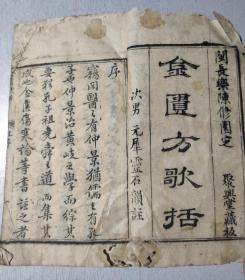 閩長樂陳修園定
金匱方歌括
聚興堂藏板
次男元犀靈石韻註
序
竊聞醫之有仲景猶儒之有
仲景治黃岐之學而綜其
要猶孔子祖堯舜之道而集其
成也金匱傷寒論等書註之者